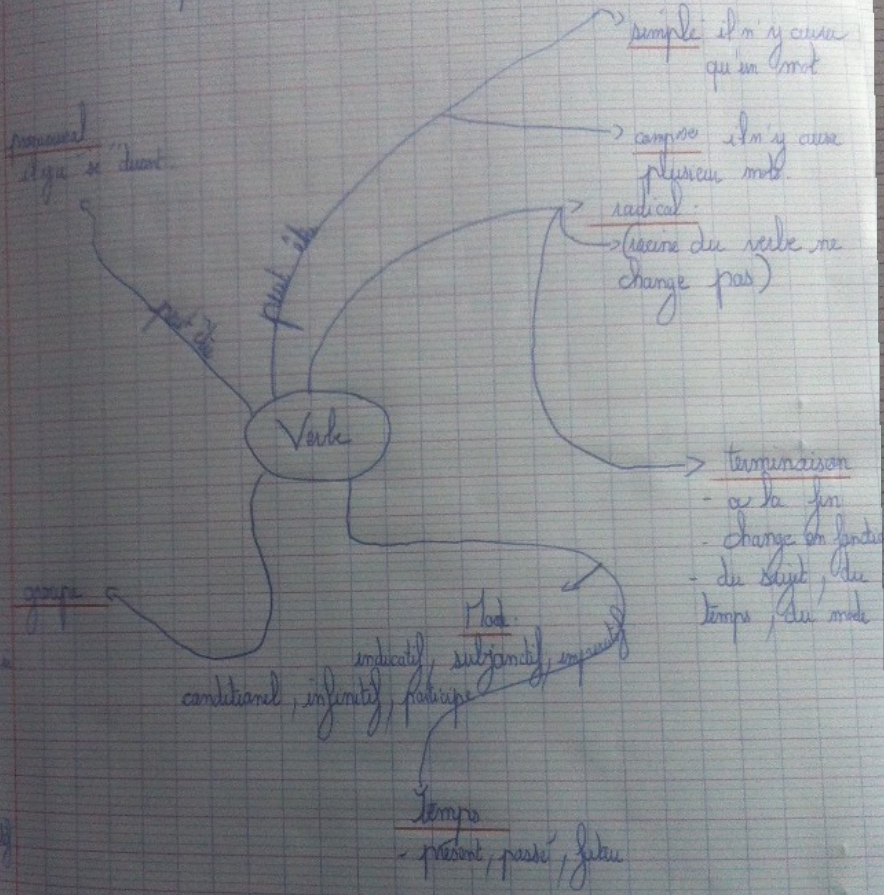 simple il n'y aura
qu'un mot
pronominal
il y a "se" devant.
composé il n'y aura
plusieur mots.
radical.
(racine du verbe ne
change pas)
peut êt
peut être
Verbe
terminaison
- a la fin
- change en fonction
- du sujet, du
temps, du mode
groupe
Mod.
indicatif, subjonctif, impératif
conditionel, infinitif, participe
Temps
- présent, passé, futur